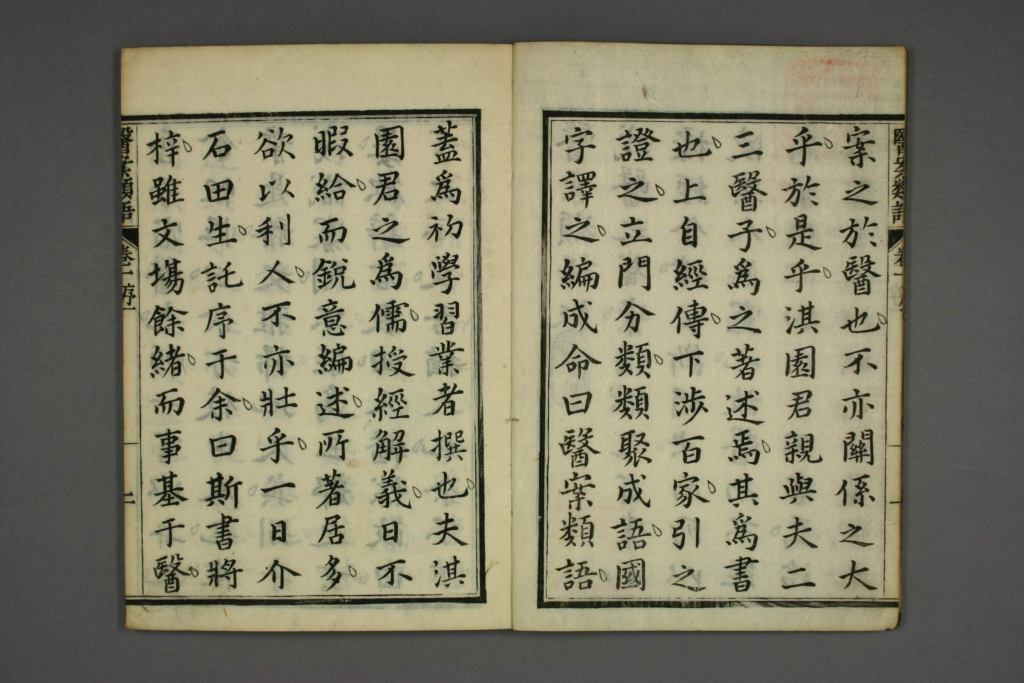 案之於醫也不亦關係之大
乎於是乎淇園君親與夫二
三醫子爲之著述焉其爲書
也上自經傳下涉百家引之
證之立門分類類聚成語國
字譯之編成命曰醫案類語
蓋爲初學習業者撰也夫淇
園君之爲儒授經解義日不
暇給而銳意編述所著居多
欲以利人不亦壯乎一日介
石田生託序于余曰斯書將
梓雖文場餘緒而事基于醫
醫案類語 卷一 序